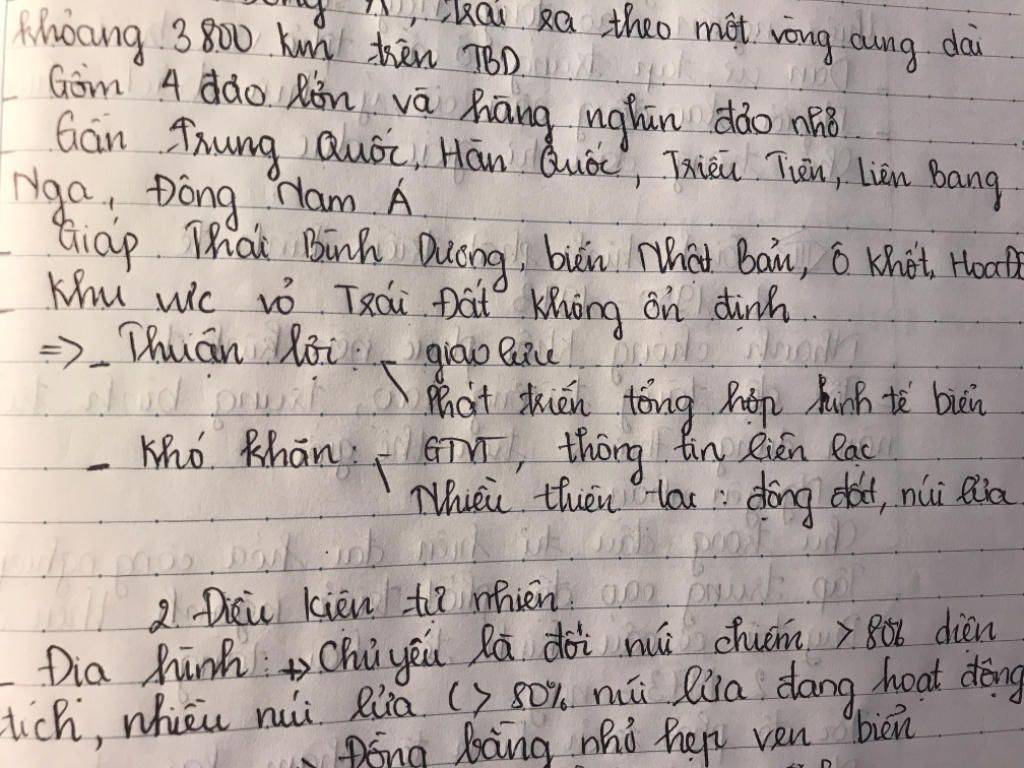 Á, trải ra theo một vòng cung dài
khoảng 3 800 km trên TBD
- Gồm 4 đảo lớn và hàng nghìn đảo nhỏ
Gần Trung Quốc, Hàn Quốc, Triều Tiên, Liên Bang
Nga, Đông Nam Á
- Giáp Thái Bình Dương, biển Nhật Bản, Ô khốt, Hoa Đ
- Khu vực vỏ Trái Đất không ổn định.
=> - Thuận lợi: - giao lưu
Phát triển tổng hợp kinh tế biển
- Khó khăn: - GTVT, thông tin liên lạc
Nhiều thiên tai: động đất, núi lửa
2. Điều kiện tự nhiên.
- Địa hình: +> Chủ yếu là đồi núi chiếm > 80% diện
tích, nhiều núi lửa (> 80% núi lửa đang hoạt động
Đồng bằng nhỏ hẹp ven biển